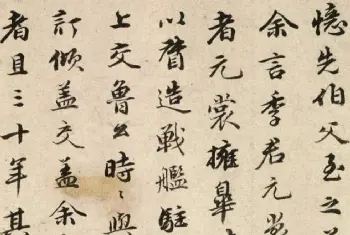 憶先伯父至之
余言季君元裳
者元裳擁皐
以督造戰艦駐
上交魯公時〻與
訂傾蓋交蓋余
者且三十年其